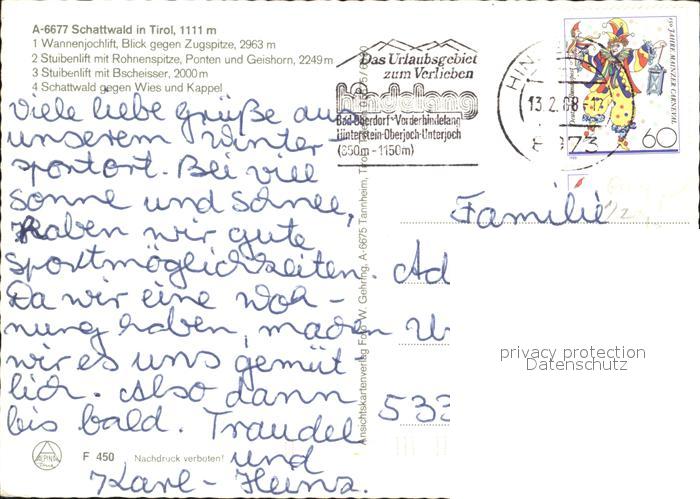 A-6677 Schattwald in Tirol, 1111 m
1 Wannenjochlift, Blick gegen Zugspitze, 2963 m
2 Stuibenlift mit Rohnenspitze, Ponten und Geishorn, 2249 m
3 Stuibenlift mit Bscheisser, 2000 m
4 Schattwald gegen Wies und Kappel
Viele liebe Grüße aus
unserem Winter-
sportort. Bei viel
Sonne und Schnee,
haben wir gute
Sportmöglichkeiten.
Da wir eine Woh-
nung haben, machen
wir es uns gemüt
lich. Also dann
bis bald. Traudel
und
Karl-Heinz.
F 450
Nachdruck verboten!
Das Urlaubsgebiet
zum Verlieben
hindelang
Bad Oberdorf-Vorderhindelang
Hinterstein-Oberjoch-Unterjoch
(850m-1150m)
13.2.88
8973
150 JAHRE MAINZER CARNEVAL
60
Familie
Ad
533
privacy protection
Datenschutz